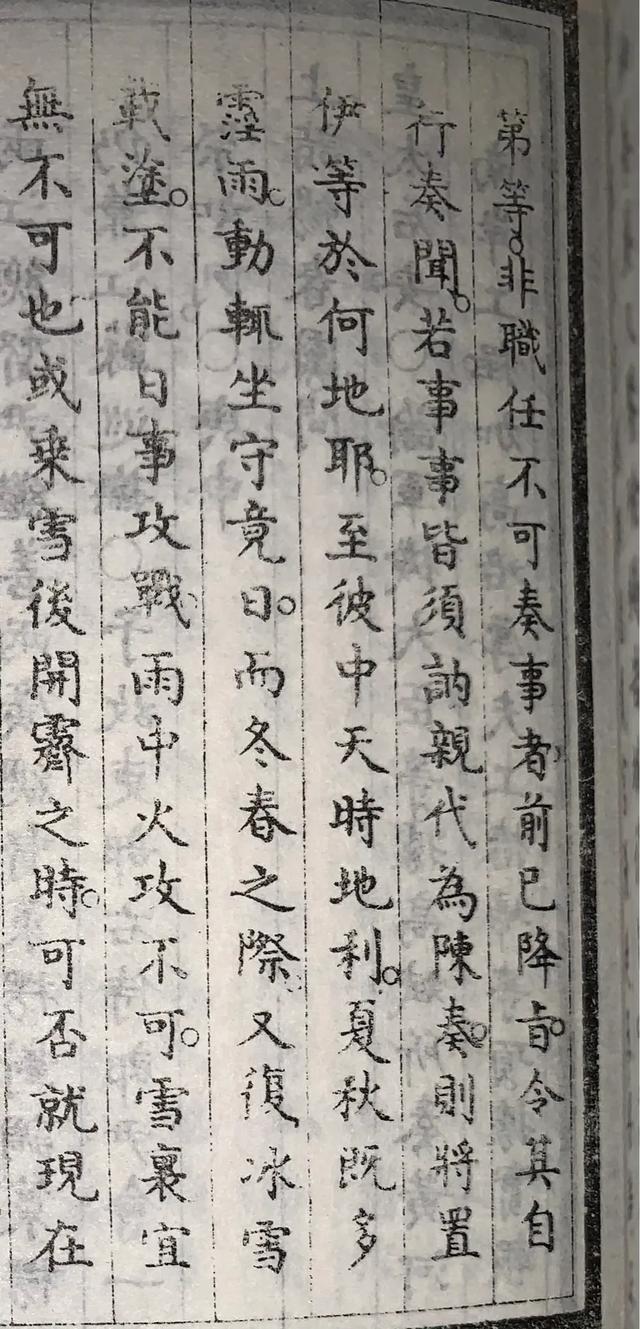 第等。非職任不可奏事者、前已降旨。令其自
行奏聞。若事事皆須訥親代為陳奏。則將置
伊等於何地耶。至彼中天時地利。夏秋既多
霪雨。動輒坐守竟日。而冬春之際、又復冰雪
載塗。不能日事攻戰、雨中火攻不可。雪裏宜
無不可也或乘雪後開霽之時。可否就現在